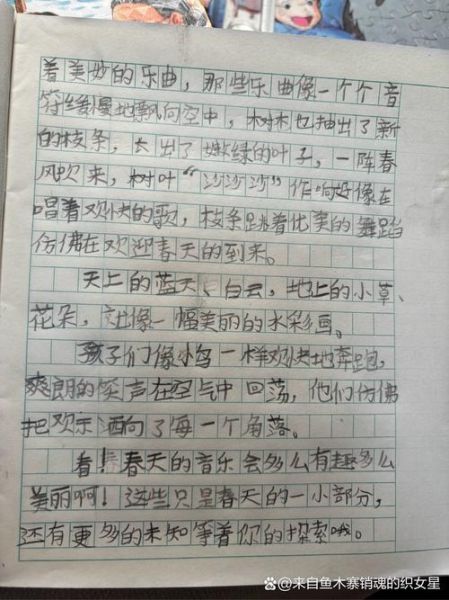 着美妙的乐曲，那些乐曲像一个个音
符缓慢地飘向空中，树木也抽出了新
的枝条，长出了嫩绿的叶子，一阵春
风吹来，树叶“沙沙沙”作响好像在
唱着欢快的歌，枝条跳着优美的舞蹈
仿佛在欢迎春天的到来。
天上的蓝天、白云，地上的小草、
花朵，就像一幅美丽的水彩画。
孩子们像小鸟一样欢快地奔跑，
爽朗的笑声在空气中回荡，他们仿佛
把欢乐洒向了每一个角落。
看！春天的音乐会多么有趣多么
美丽啊！这些只是春天的一小部分，
还有更多的未知等着你的探索哦。
@来自鱼木寨销魂的织女星